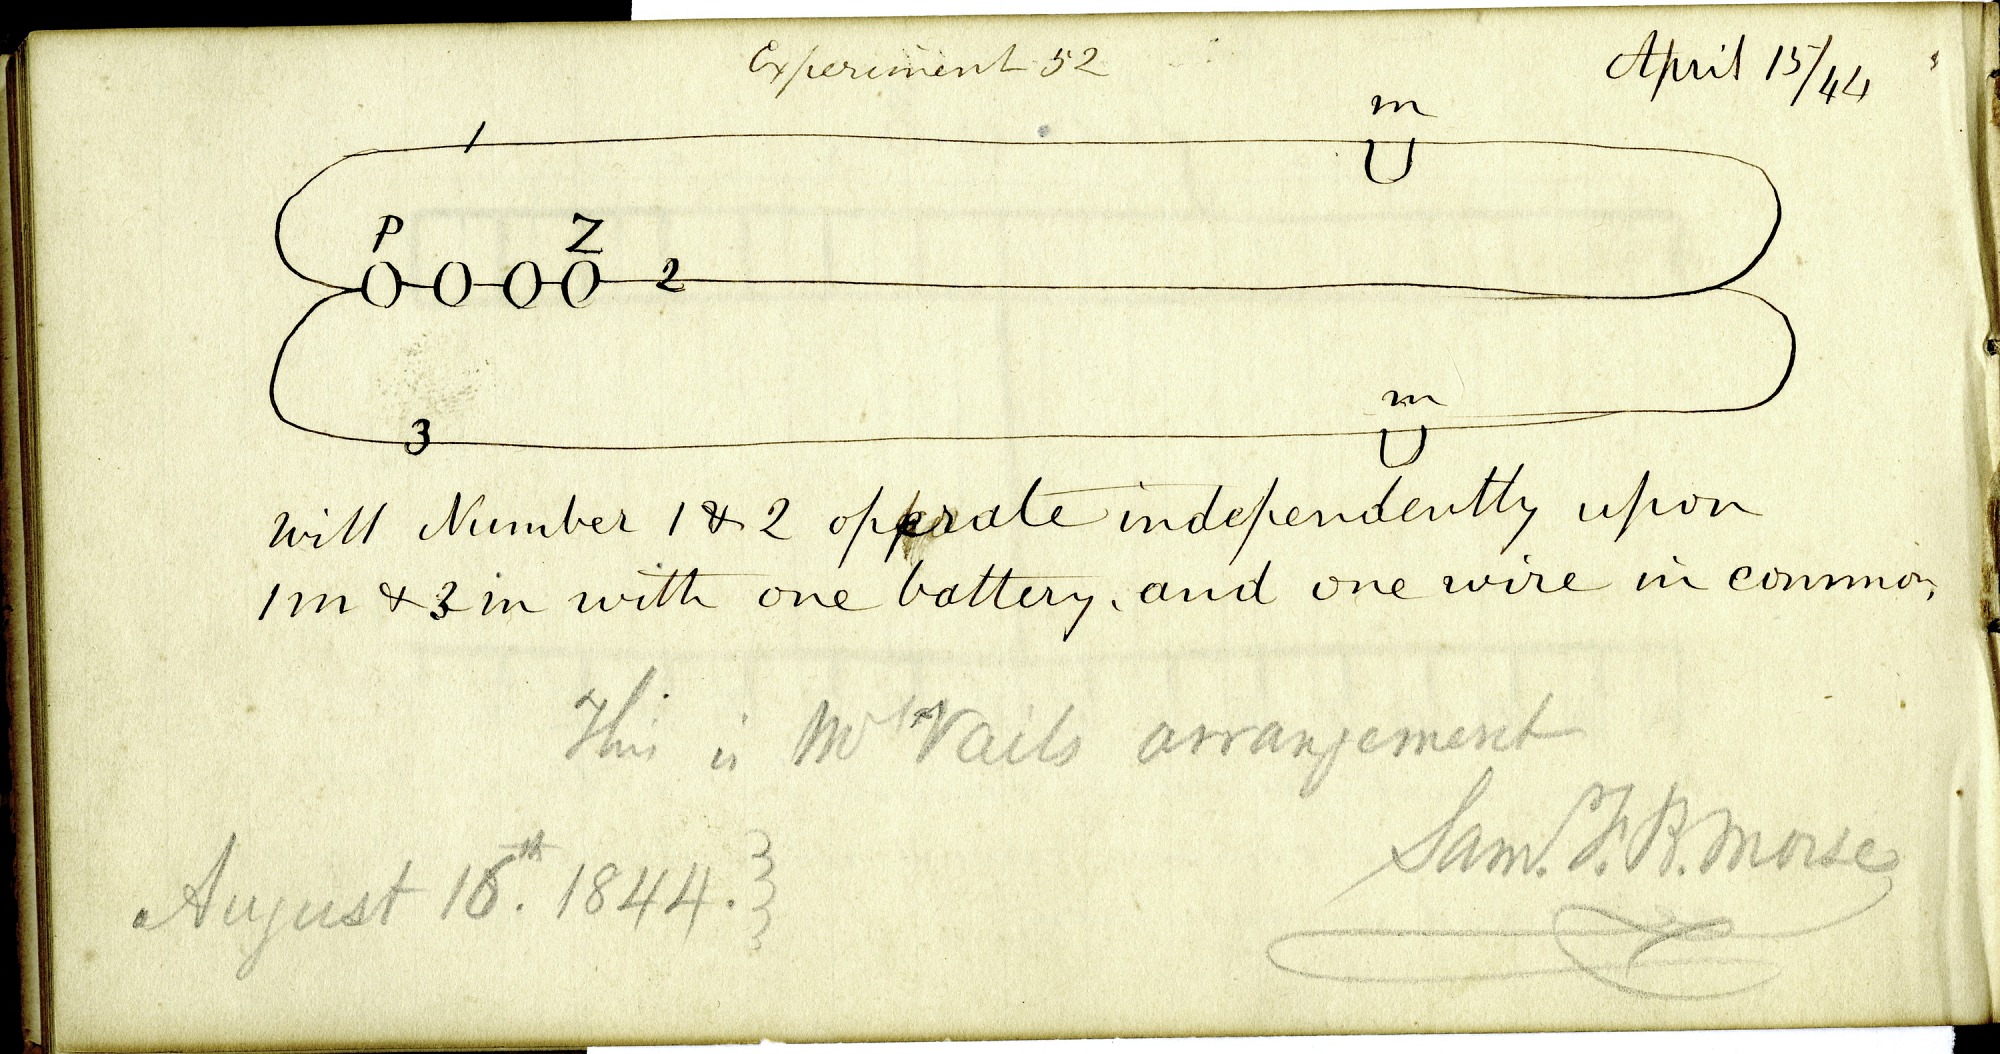 Experiment 52
April 15/44
m
1
P Z
2
m
3
Will Number 1 & 2 operate independently upon
1m & 3m with one battery, and one wire in common,
This is Mr Vails arrangement
Sam. F. B. Morse
August 16th. 1844.